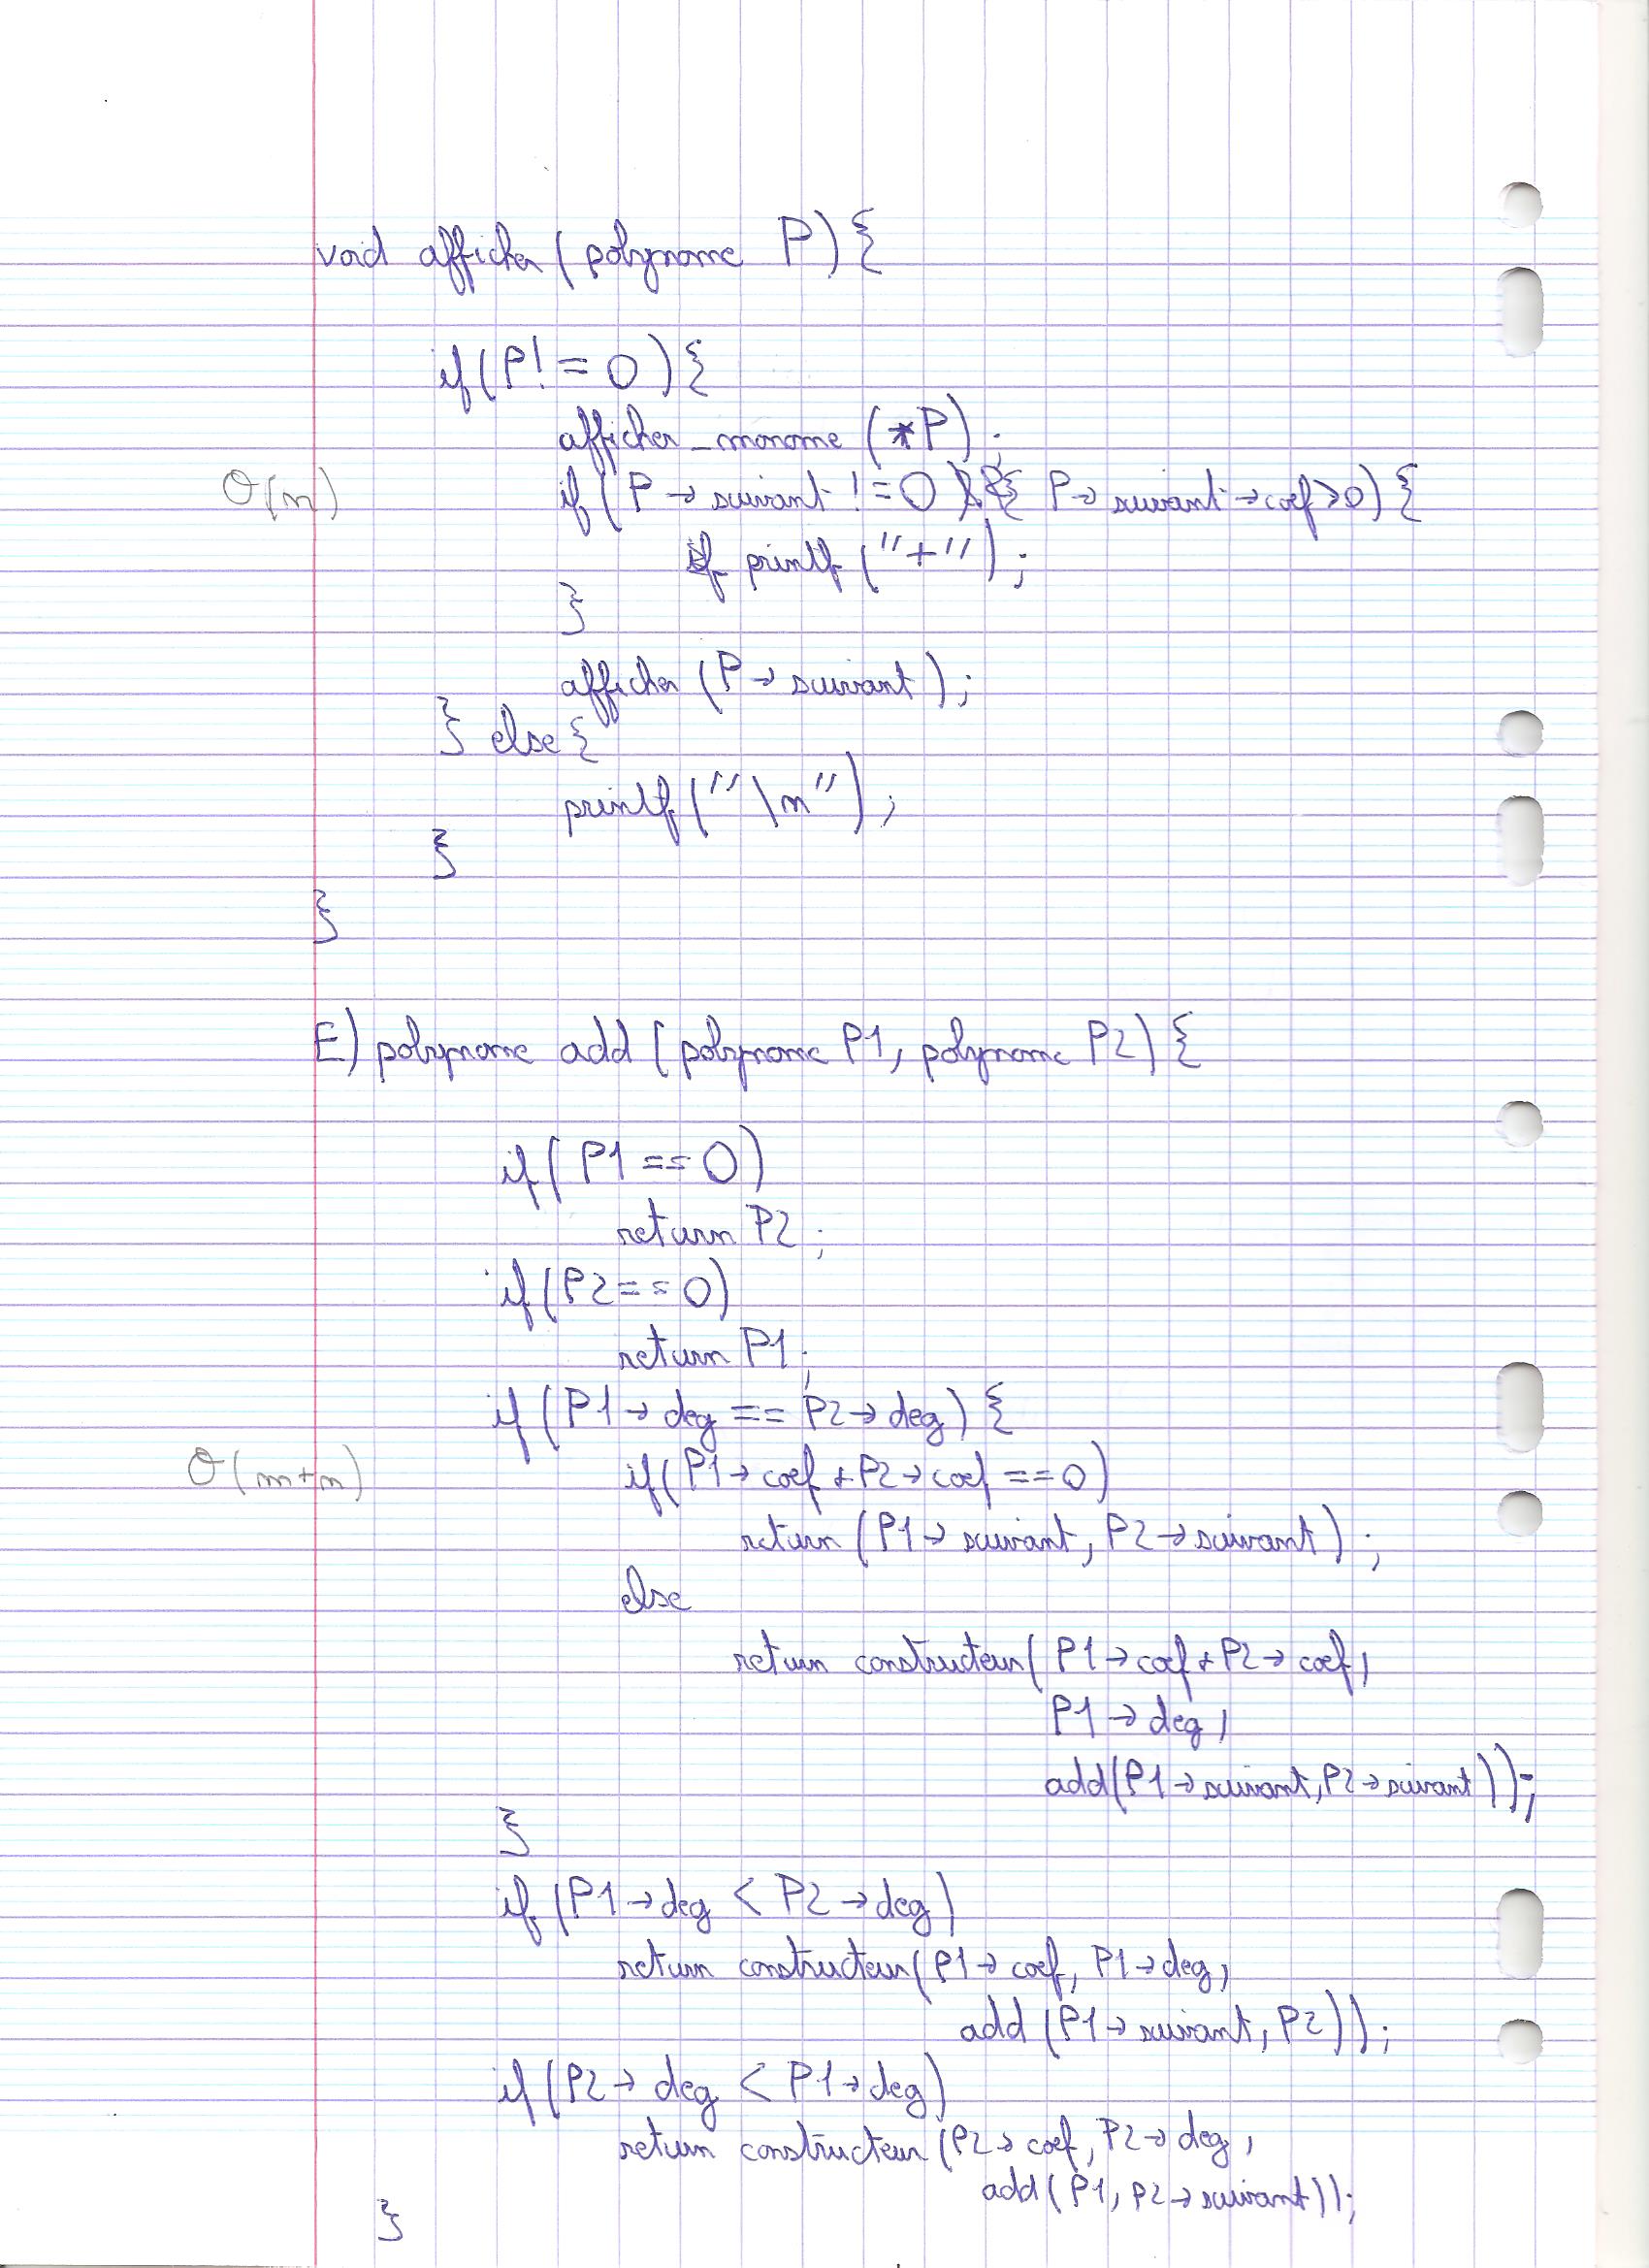 void afficher (polynome P) {
if (P != 0) {
afficher_monome (*P);
O(n) if (P → suivant != 0 && P → suivant → coef > 0) {
printf ("+");
}
afficher (P → suivant);
} else {
printf ("\n");
}
}
E) polynome add (polynome P1, polynome P2) {
if (P1 == 0)
return P2;
if (P2 == 0)
return P1;
if (P1 → deg == P2 → deg) {
O(m+n) if (P1 → coef + P2 → coef == 0)
return (P1 → suivant, P2 → suivant);
else
return constructeur (P1 → coef + P2 → coef,
P1 → deg,
add(P1 → suivant, P2 → suivant));
}
if (P1 → deg < P2 → deg)
return constructeur (P1 → coef, P1 → deg,
add (P1 → suivant, P2));
if (P2 → deg < P1 → deg)
return constructeur (P2 → coef, P2 → deg,
add (P1, P2 → suivant));
}